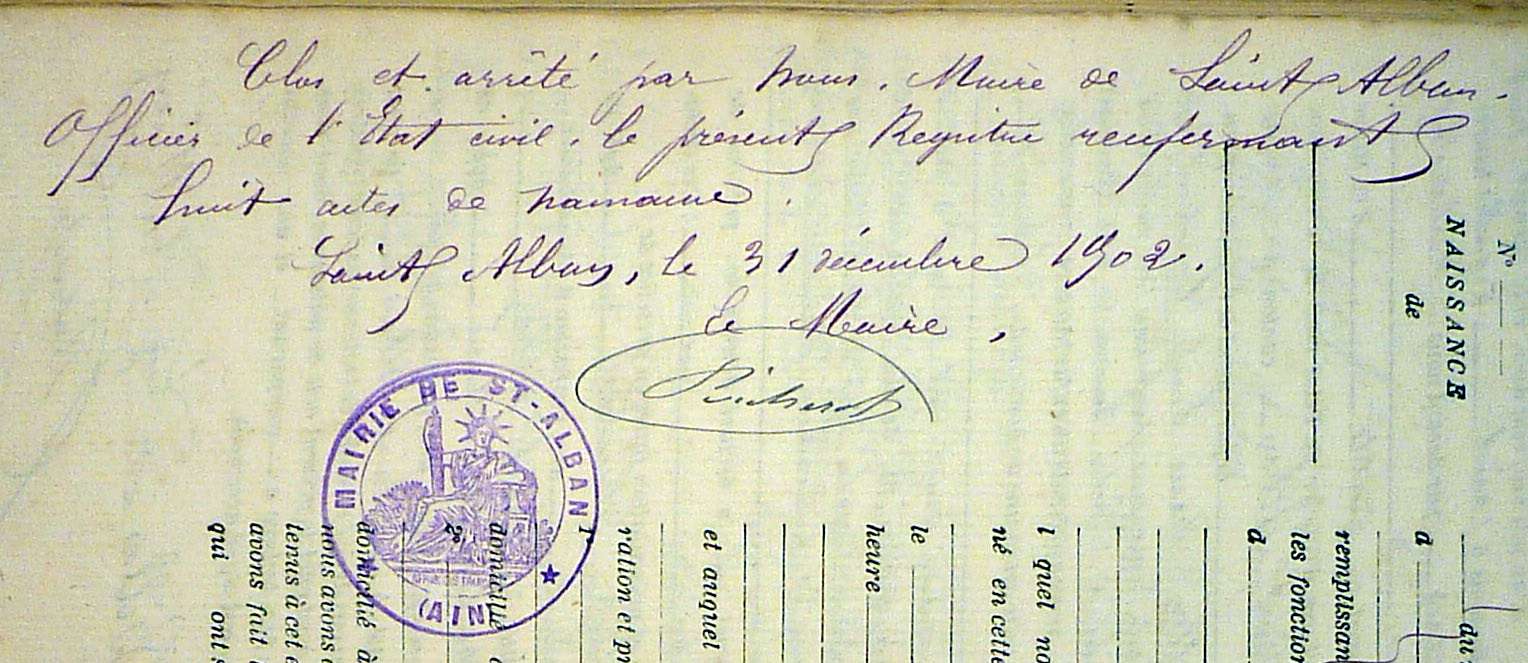 Clos et arrêté par nous, Maire de Saint Alban,
Officier de l'Etat civil, le présent Registre renfermant
huit actes de naissance.
Saint Alban, le 31 décembre 1902.
Le Maire,
MAIRIE DE ST-ALBAN
(AIN)
N°
NAISSANCE
de
du
à
remplissan
les fonction
d
l quel no
né en cette
le
heure
et auquel
ration et pr
domicilié
domicilié à
nous avons
tenus à cet e
avons fait
qui ont s